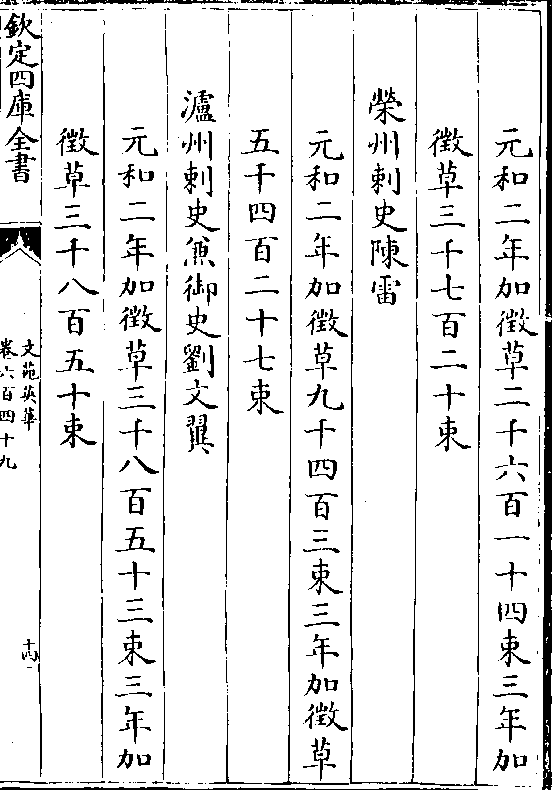 元和二年加徵草二千六百一十四束三年加
徵草三千七百二十束
榮州刺史陳雷
元和二年加徵草九千四百三束三年加徵草
五千四百二十七束
瀘州刺史兼御史劉文翼
元和二年加徵草三千八百五十三束三年加
徵草三千八百五十束
欽定四庫全書
文苑英華
卷六百四十九
十四